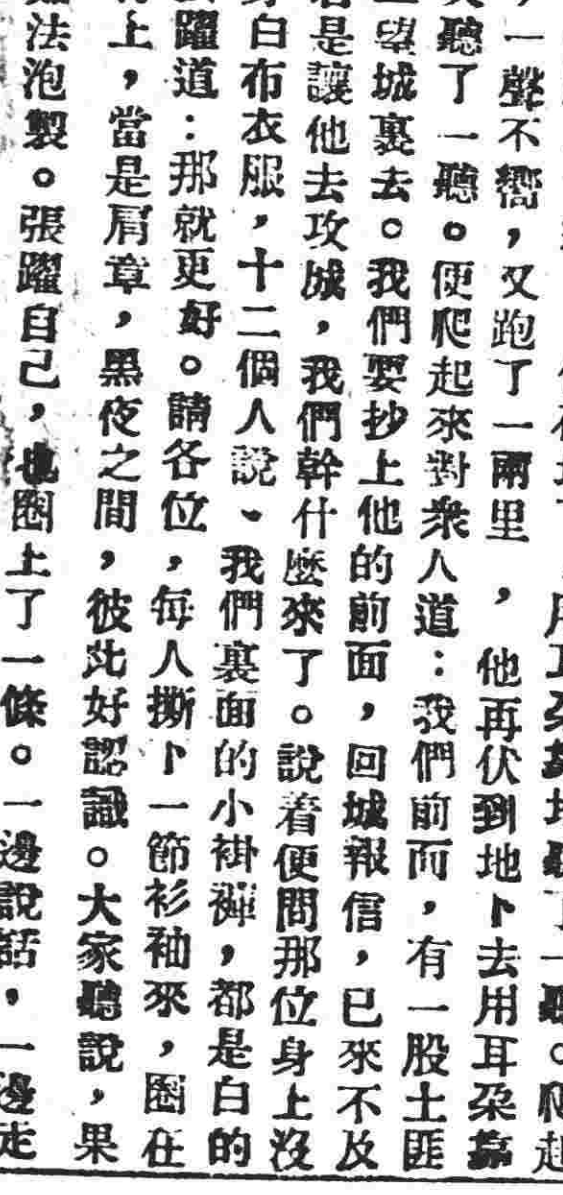 用耳朵靠地聽了一聽。爬起
，一聲不嚮，又跑了一兩里，他再伏到地下去用耳朵靠
聽了一聽。便爬起來對衆人道：我們前面，有一股土匪
望城裏去。我們要抄上他的前面，回城報信，已來不及
是讓他去攻城，我們幹什麽來了。說着便問那位身上沒
白布衣服，十二個人說、我們裏面的小褂褲，都是白的
躍道：那就更好。請各位，每人撕下一節衫袖來，圈在
上，當是肩章，黑夜之間，彼此好認識。大家聽說，果
法泡製。張躍自己，也圈上了一條。一邊說話，一邊走